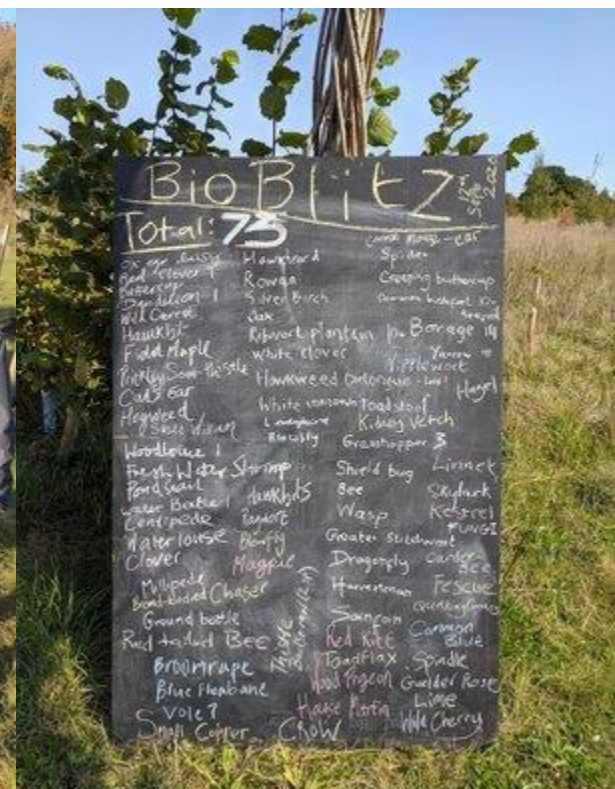 BioBlitZ Sep 2020
Total: 73
ox eye daisy
Red Clover 1
Buttercup
Dandelion 1
Wild Carrot
Hawkbit
Field Maple
Prickly Sow Thistle
Cats Ear
Hogweed
Woodlouse 1
Fresh Water Shrimp
Pond Snail
Water Beetle 1
Centipede
Water louse
Clover
Millipede
Broad bodied Chaser
Ground beetle
Red tailed Bee
Broomrape
Blue Fleabane
Vole ?
Small Copper
Rowan
Silver Birch
Oak
Ribwort plantain
White clover
Hawkweed
White
Hawkbits
Ragwort
Magpie
Thistle
Crow
Spider
Creeping buttercup
Borage 14
Yarrow
Nipplewort
Hazel
Toadstool
Kidney Vetch
Grasshopper 3
Shield bug
Bee
Wasp
Greater Stitchwort
Dragonfly
Harvestman
Sainfoin
Red Kite
Toadflax
Wood Pigeon
House Martin
Linnet
Skylark
Kestrel
FUNGI
Carder BEE
FESCUE
Common Blue
Spindle
Guelder Rose
Lime
Wild Cherry